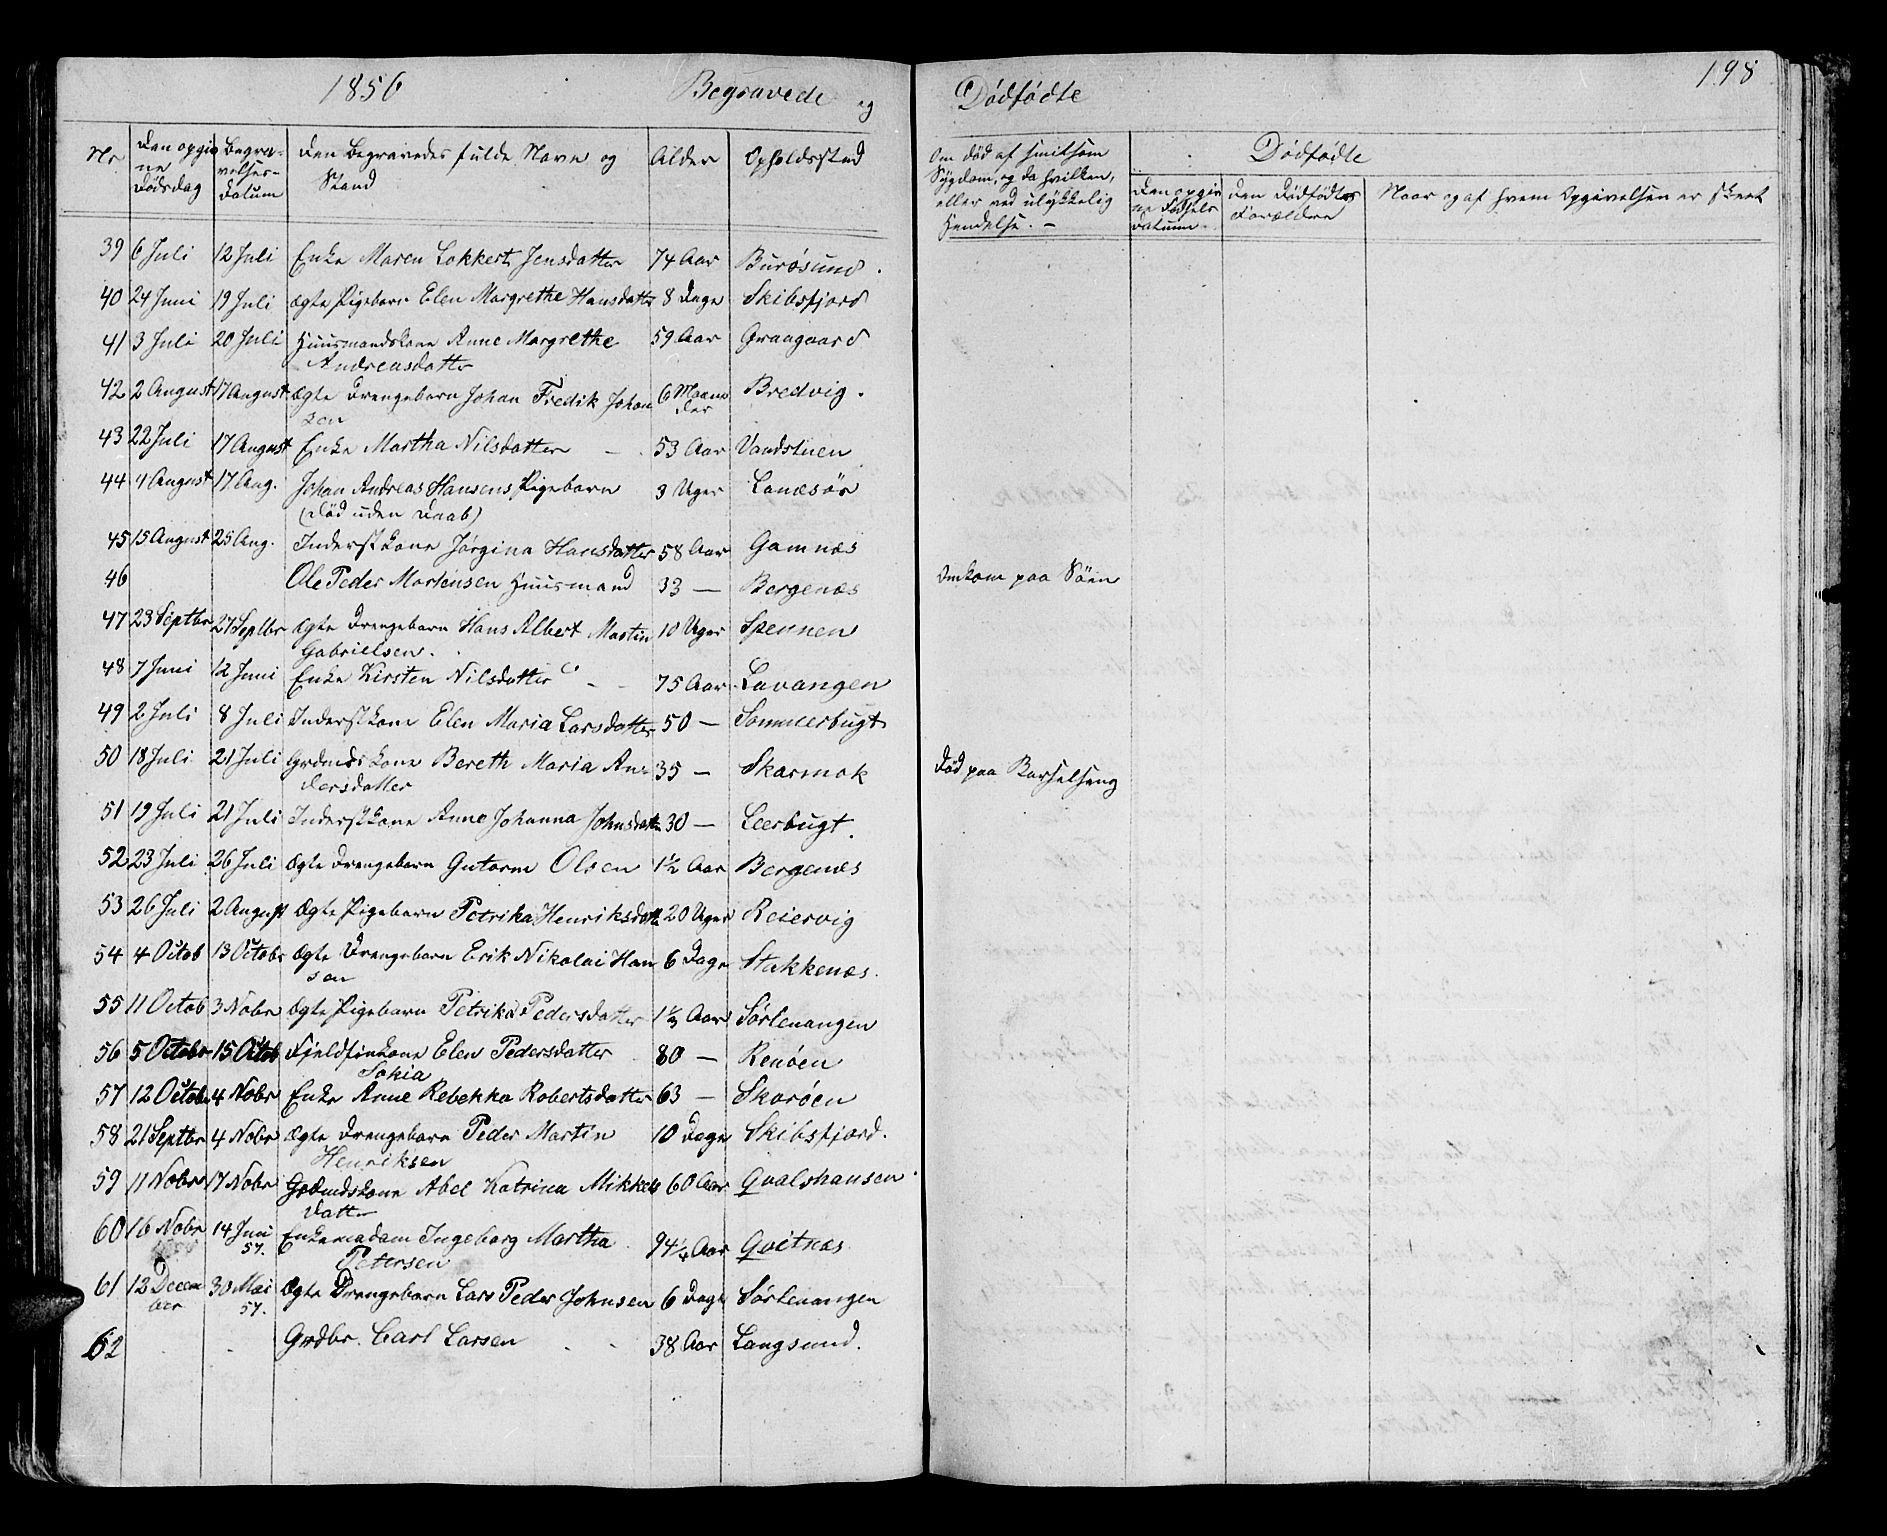 1856 Begravede og Dødfødte 198
Nr
Den opgiv
ne
Dødsdag
Begra-
velses-
Datum
Den Begravedes fulde Navn og
Stand
Alder
Opholdssted
Om død af smitsom
Sygdom, og da hvilken,
eller ved ulykkelig
Hendelse. -
Dødfødte
Den opgiv
ne Fødsels
Datum.
Den Dødfødtes
Forældre
Naar og af hvem Opgivelsen er skeet
39 6 Juli 12 Juli Enke Maren Lokkert Jensdatter 74 Aar Burøsund.
40 24 Juni 19 Juli Ægte Pigebarn Elen Margrethe Hansdatter 8 Dage Skibsfjord
41 3 Juli 20 Juli Huusmandskone Anne Margrethe 59 Aar Graagaard
Andreasdatter
42 2 August 17 August Ægte Drengebarn Johan Fredik Johan 6 Maane Bredvig.
sen der
43 22 Juli 17 August Enke Martha Nilsdatter - 53 Aar Vandstuen
44 4 August 17 Aug. Johan Andreas Hansens Pigebarn 3 Uger Lanesør
(Død uden Daab)
45 15 August 25 Aug. Inderstkone Jørgina Hansdatter 58 Aar Gamnæs
46 Ole Peder Mortensen Huusmand 33 — Bergenæs Omkom paa Søen
47 23 Septbr 27 Septbr Ægte Drengebarn Hans Albert Martin 10 Uger Spennen
Gabrielsen.
48 7 Juni 12 Juni Enke Kirsten Nilsdatter - - 75 Aar Lavangen
49 2 Juli 8 Juli Inderstkone Elen Maria Larsdatter 50 — Sommerbugt
50 18 Juli 21 Juli Grdmdskone Bereth Maria An- 35 — Skarmok Død paa Barselseng
dersdatter
51 19 Juli 21 Juli Inderstkone Anne Johanna Johnsdatter 30 — Leerbugt.
52 23 Juli 26 Juli Ægte Drengebarn Gutorm Olsen 1½ Aar Bergenæs
53 26 Juli 2 August Ægte Pigebarn Petrika Henriksdatter 20 Uger Reiervig
54 4 Octob 13 Octobr Ægte Drengebarn Erik Nikolai Han 6 Dage Stakkenæs.
sen
55 11 Octob 3 Nobr Ægte Pigebarn Petrika Pedersdatter Aar Sørlenangen
56 5 Octobr 15 Octob Fjeldfinkone Elen Pedersdatter 80 — Renøen
Sokia
57 12 Octobr 4 Nobr Enke Anne Rebekka Robertsdatter 63 — Skorøen
58 21 Septbr 4 Nobr Ægte Drengebarn Peder Martin 10 Dage Skibsfjord.
Henriksen
59 11 Nobr 17 Nobr Grdmdskone Abel Katrina Mikkels 60 Aar Qvalshausen
datter
60 16 Nobr 14 Juni Enkemadam Ingeborg Martha 94¼ Aar Qvitnæs
57. Petersen
61 12 Decem 30 Mai Ægte Drengebarn Lars Peder Johnsen 6 Dage Sørlenangen
ber 57.
62 Grdbr. Carl Larsen - - 38 Aar Langsund.